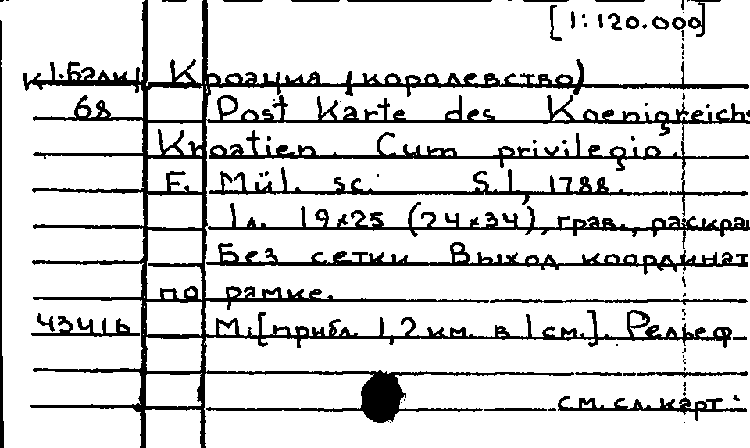 [1:120.000]
К 1-Балк Кроация (королевство)
68 Post Karte des Koenigreichs
Kroatien. Cum privilegio.
F. Mül. sc. S.l, 1788.
1л. 19×25 (24×34), грав., раскра
Без сетки Выход координат
по рамке.
43416 М.[прибл. 1,2 км. в 1 см.]. Рельеф
см. сл. карт.